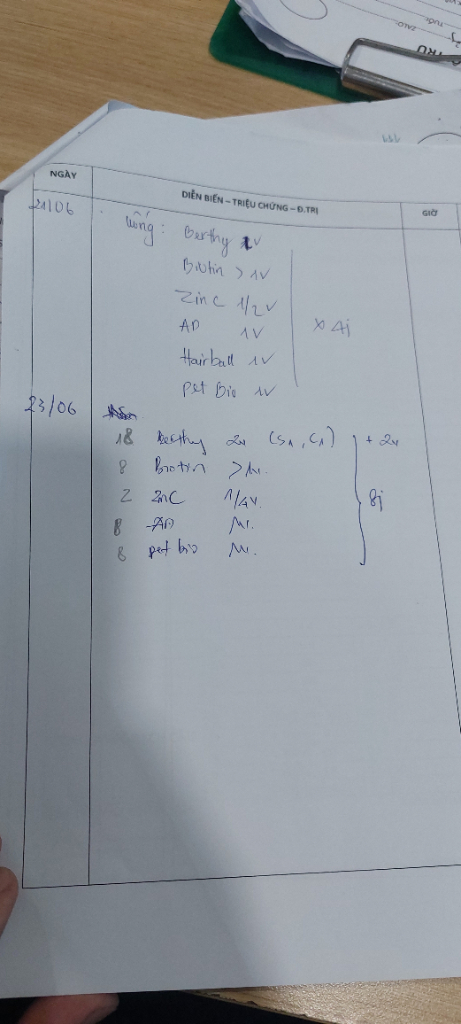 NGÀY DIỄN BIẾN – TRIỆU CHỨNG – Đ.TRỊ GIỜ
21/06 Uống: Berthy 1V
Biotin > 1V
Zinc 1/2V
AD 1V
Hairball 1V
pet Bio 1V
x 4j
23/06
18 Berthy 2v (S1, C1) + 2v
8 Biotin > 1v.
2 zinC 1/4V.
8 AD 1v.
8 pet bio 1v.
8j